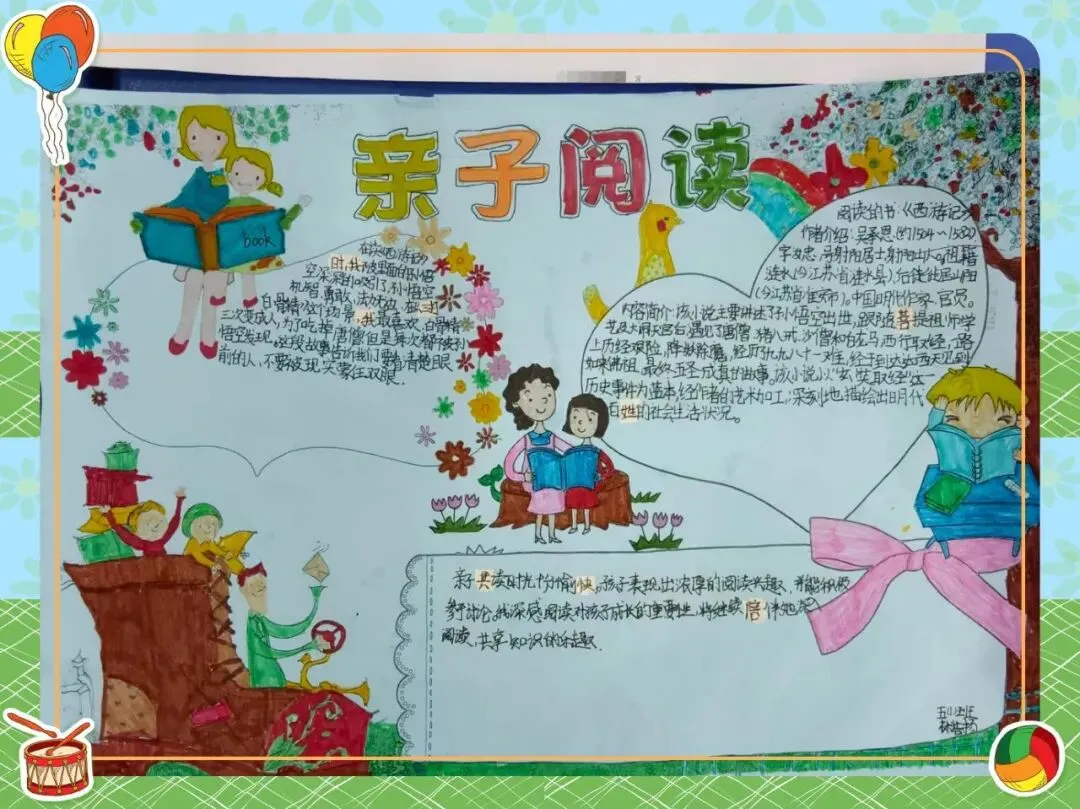 亲子阅读
book
在读《西游记》
时,我被里面的孙悟
空深深的吸引了,孙悟空
机智、勇敢、法力无边,在"三打
白骨精"这个故事,我最喜欢,白骨精
三次变成人,为了吃掉唐僧但是每次都被孙
悟空发现。这段故事告诉我们要看清楚眼
前的人,不要被现实蒙住双眼.
阅读的书:《西游记》
作者介绍:吴承恩(约1504~1582)
字汝忠,号射阳居士射阳山人。祖籍
涟水(今江苏省涟水县),后徙居山阳
(今江苏省淮安市)。中国明代作家、官员。
内容简介:该小说主要讲述了孙悟空出世,跟随菩提祖师学
艺及大闹天宫后,遇见了唐僧、猪八戒、沙僧和白龙马西行取经,一路
上历经艰险,降妖除魔,经历九九八十一难,终于到达西天见到
如来佛祖,最终五圣成真的故事。该小说以"玄奘取经"这一
历史事件为蓝本,经作者的艺术加工,深刻地描绘出明代
百姓的社会生活状况。
亲子共读时光十分愉快。孩子表现出浓厚的阅读兴趣,并能积极
参与讨论。我深感阅读对孩子成长的重要性,将继续陪伴她
阅读,共享知识的乐趣.
五(1)班